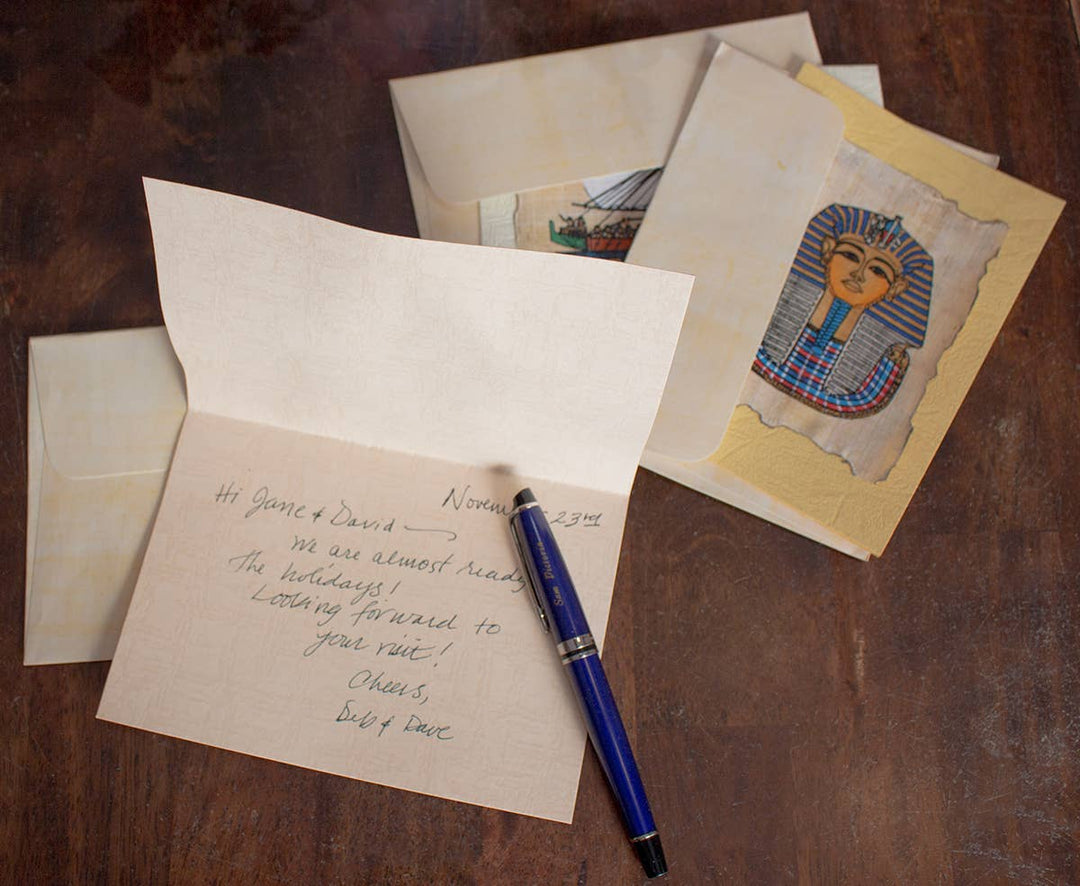 November 23rd
Hi Jane & David —
We are almost ready
The holidays!
Looking forward to
your visit!
Cheers,
Deb & Dave
Sam Victoria